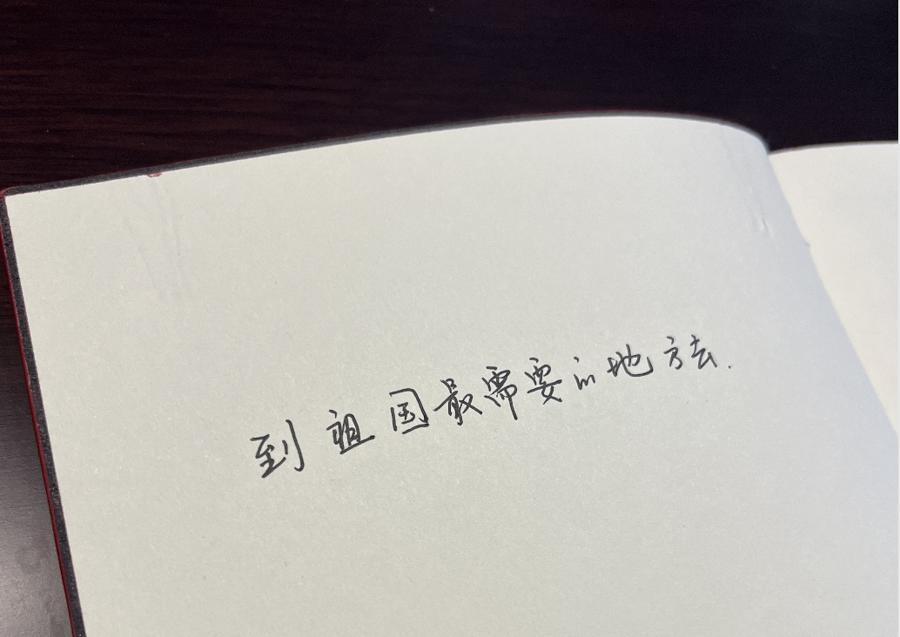 到祖国最需要的地方去.